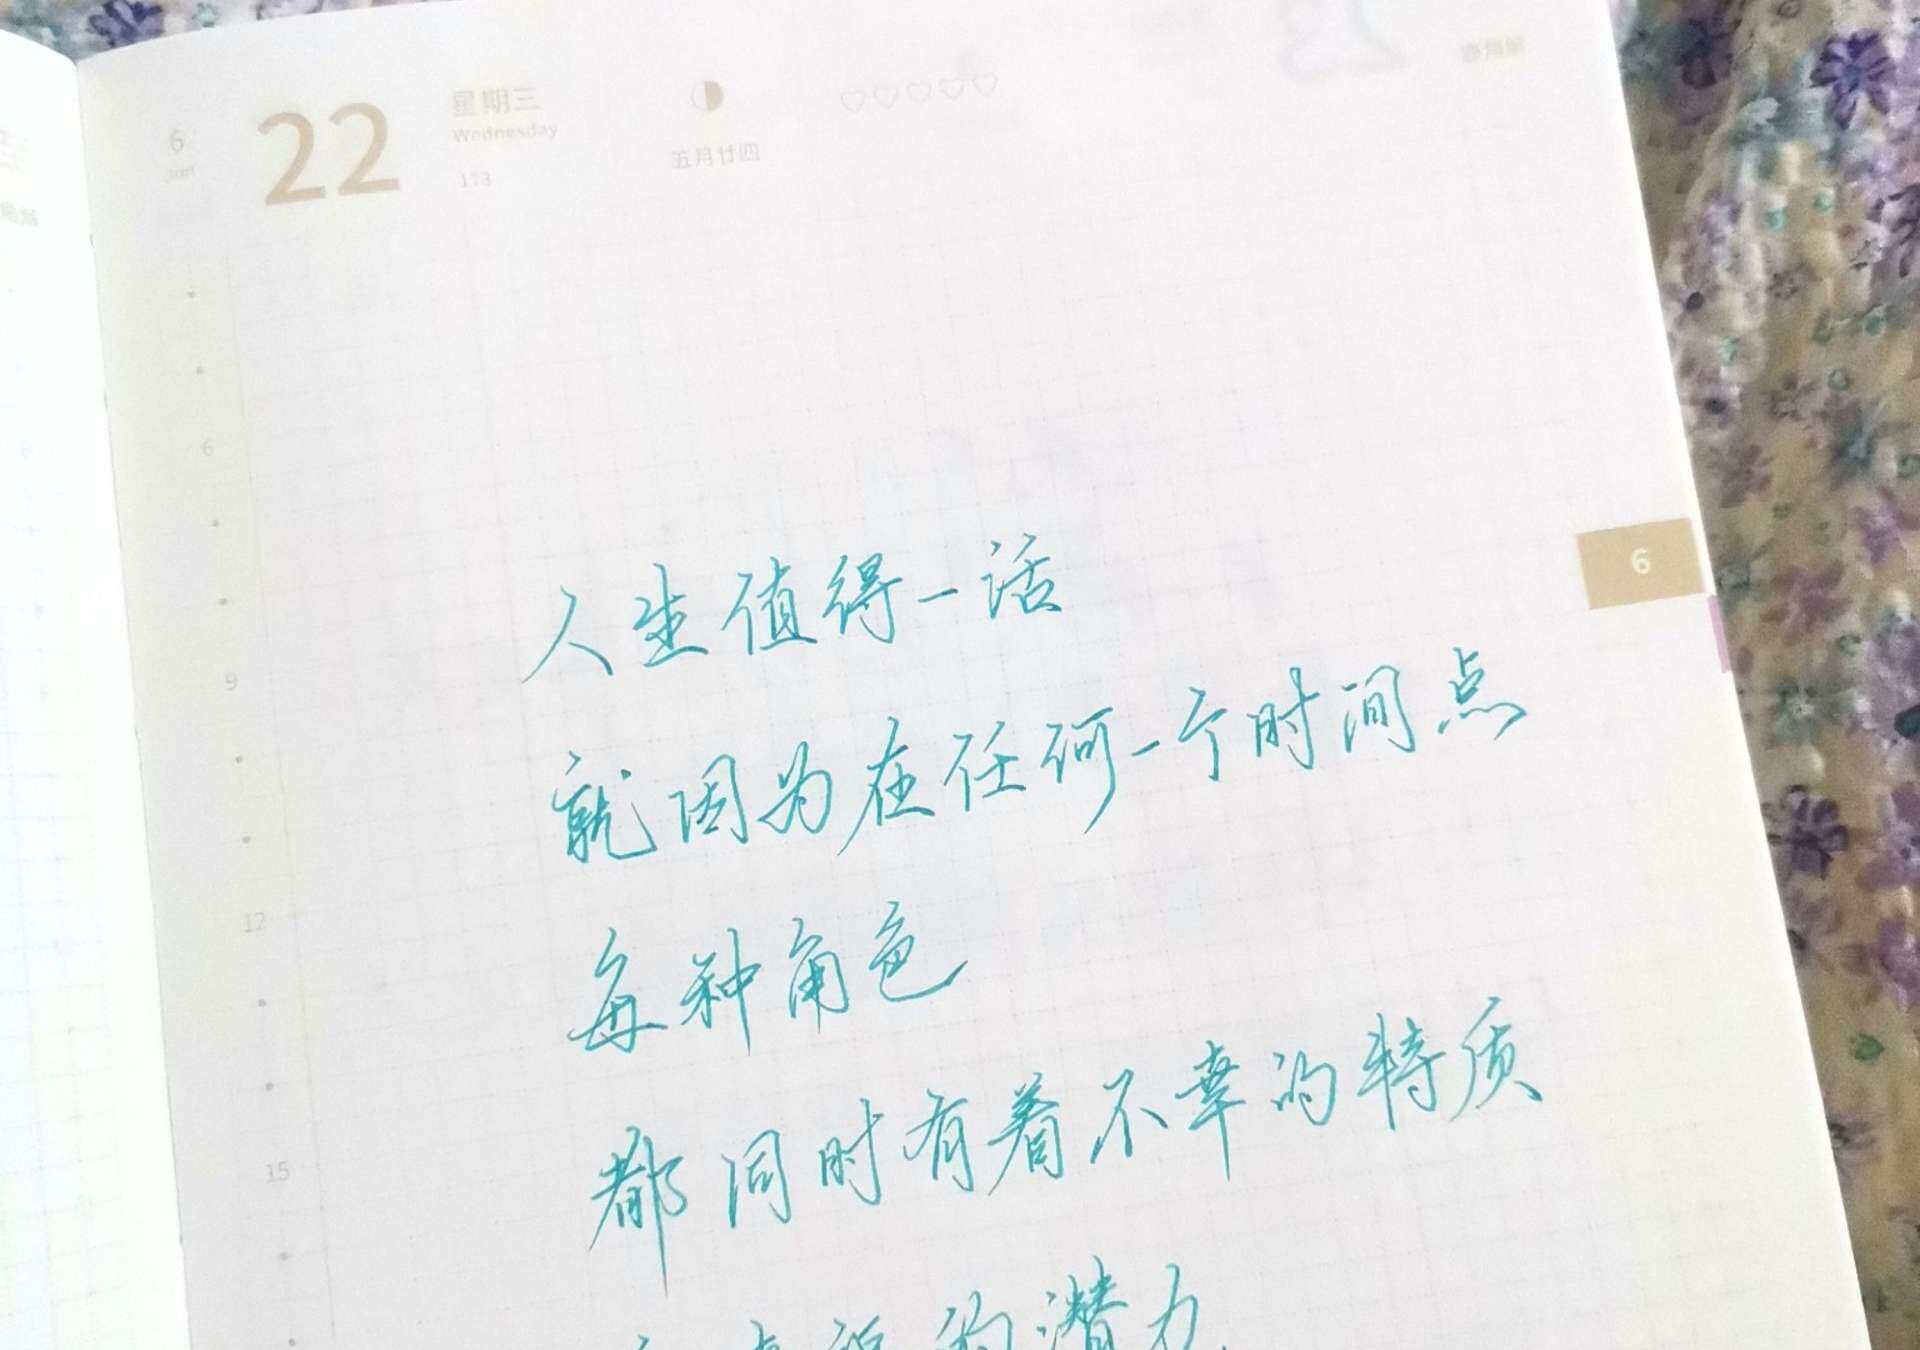 6
Jun
22
星期三
Wednesday
173
五月廿四
6
9
12
15
6
人生值得一活
就因为在任何一个时间点
每种角色
都同时有着不幸的特质
的潜力